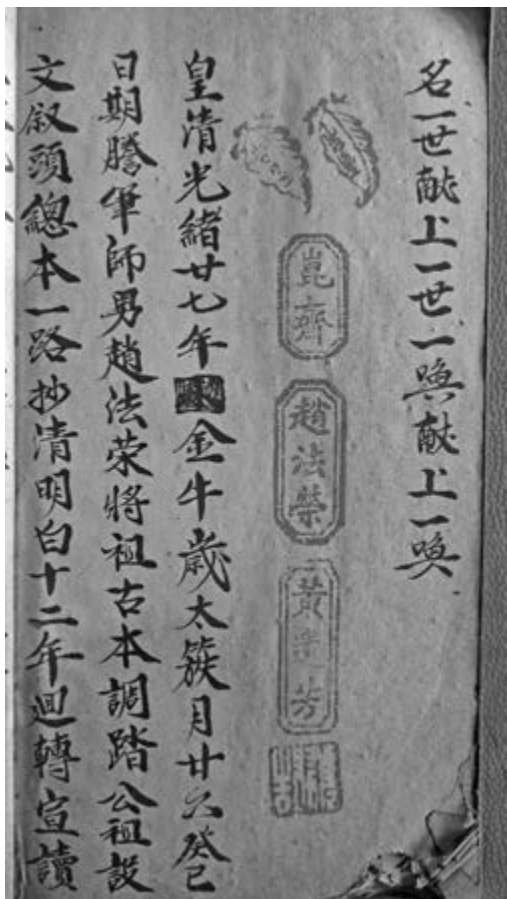 名一世献上一世一喚献上一喚
崑齊
趙法榮
黄
芳
皇清光緒廿七年金牛歲太簇月廿六癸巳
日期謄筆師男趙法荣將祖古本調踏公祖設
文叙頭總本一路抄清明白十二年迴轉宣讀